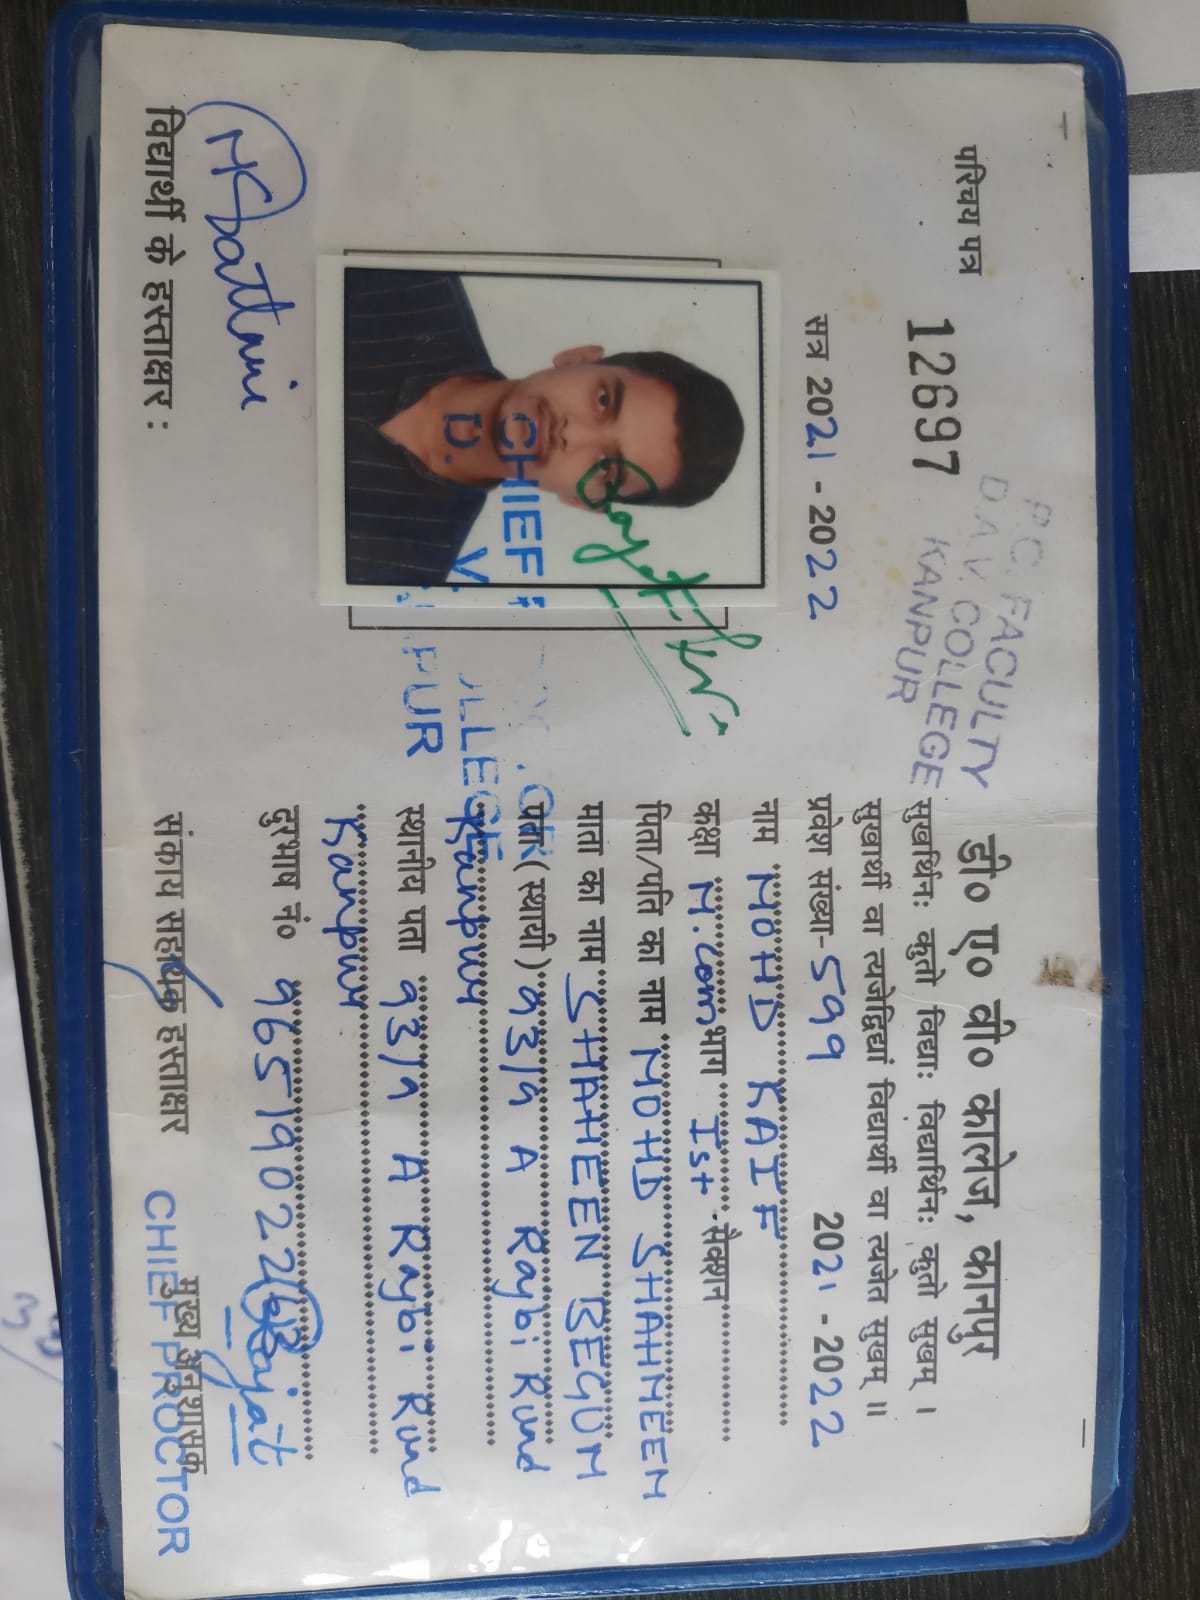 परिचय पत्र
12697
P.G. FACULTY
D.A.V. COLLEGE
KANPUR
सत्र 2021 - 2022
CHIEF
D. V.
विद्यार्थी के हस्ताक्षर :
डी० ए० वी० कालेज, कानपुर
सुखार्थिनः कुतो विद्याः विद्यार्थिनः कुतो सुखम् ।
सुखार्थी वा त्यजेद्विद्यां विद्यार्थी वा त्यजेत सुखम् ॥
प्रवेश संख्या-599 2021 - 2022
नाम MOHD KAIF
कक्षा M.Com भाग Ist सैक्शन
पिता/पति का नाम MOHD SHAHNEEM
माता का नाम SHAHEEN BEGUM
पता (स्थायी) 93/9 A Raybi Rund
Kanpur
स्थानीय पता 93/9 A Raybi Rund
Kanpur
दुरभाष नं०
संकाय सहायक हस्ताक्षर मुख्य अनुशासक
CHIEF PROCTOR